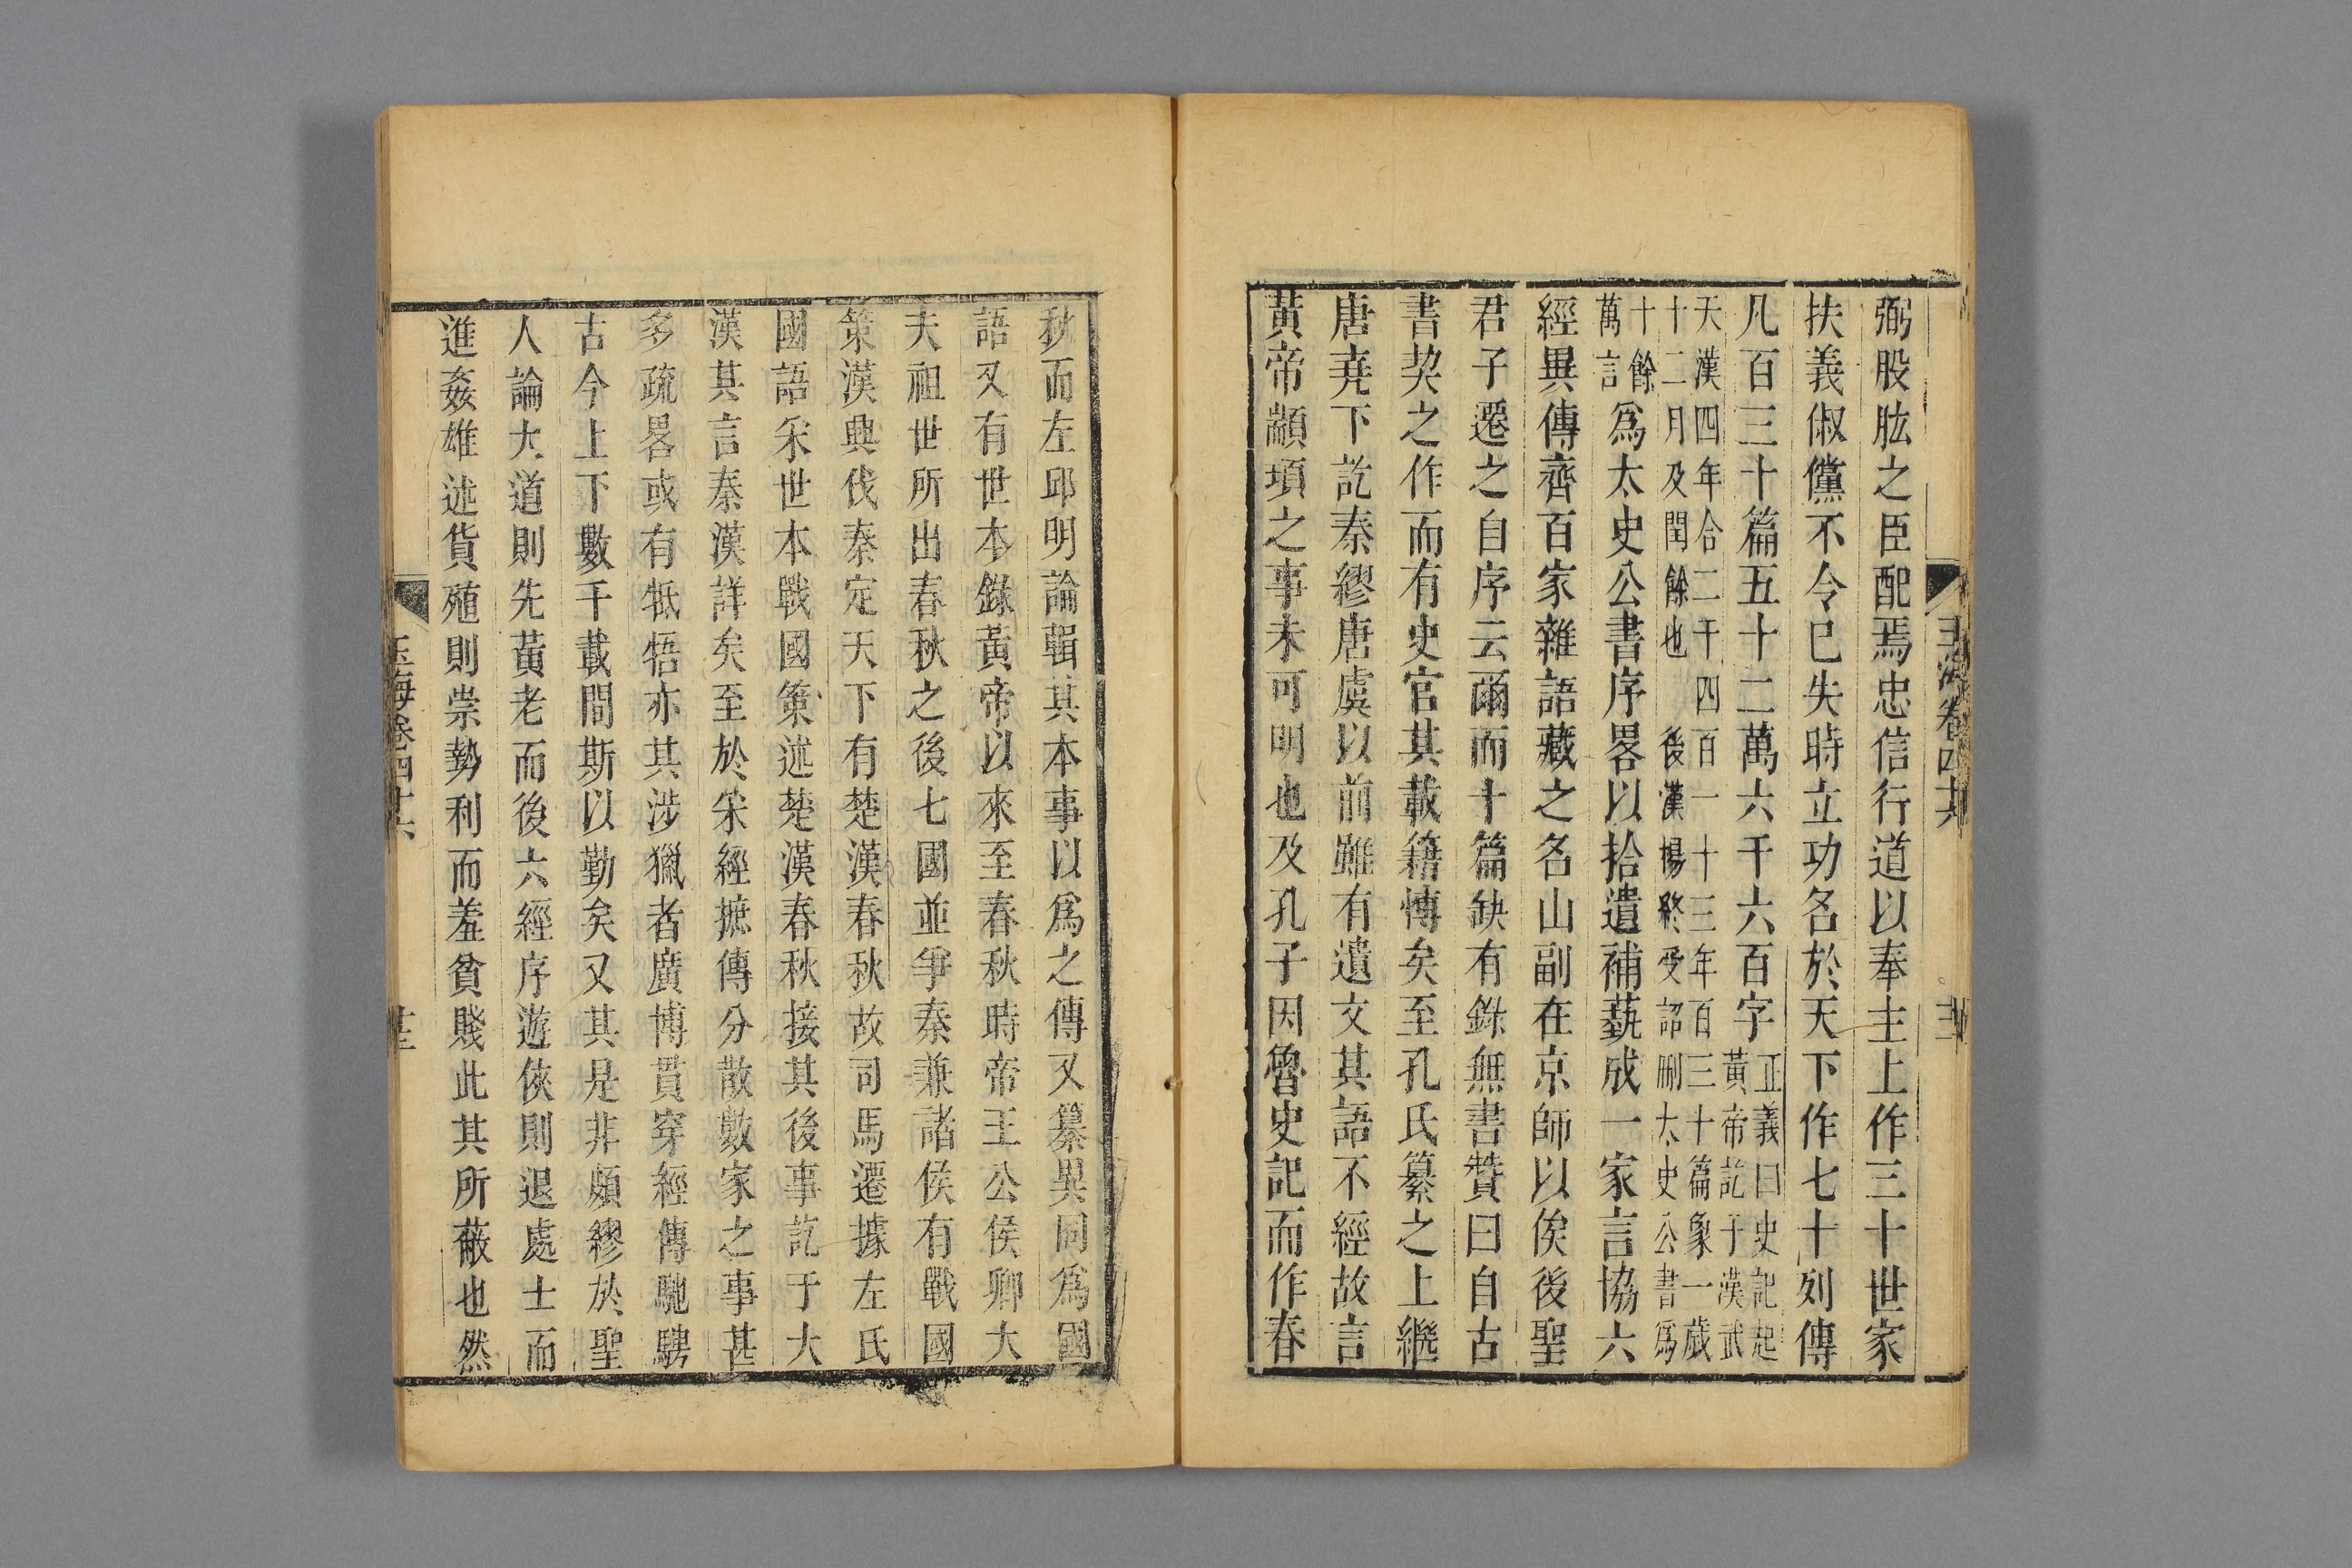 弼股肱之臣配焉忠信行道以奉主上作三十世家
扶義俶儻不令已失時立功名於天下作七十列傳
凡百三十篇五十二萬六千六百字正義曰史記起
黃帝訖于漢武
天漢四年合二千四百一十三年百三十篇象一歲
十二月及閏餘也　後漢楊終受詔刪太史公書爲
十餘
萬言爲太史公書序畧以拾遺補蓺成一家言協六
經異傳齊百家雜語藏之名山副在京師以俟後聖
君子遷之自序云爾而十篇缺有錄無書贊曰自古
書契之作而有史官其載籍愽矣至孔氏纂之上繼
唐堯下訖秦繆唐虞以前雖有遺文其語不經故言
黃帝顓頊之事未可明也及孔子因魯史記而作春
秋而左邱明論輯其本事以爲之傳又纂異同爲國
語又有世本錄黃帝以來至春秋時帝王公侯卿大
夫祖世所出春秋之後七國並爭秦兼諸侯有戰國
策漢興伐秦定天下有楚漢春秋故司馬遷據左氏
國語采世本戰國策述楚漢春秋接其後事訖于大
漢其言秦漢詳矣至於采經摭傳分散數家之事甚
多疏畧或有牴牾亦其涉獵者廣博貫穿經傳馳騁
古今上下數千載間斯以勤矣又其是非頗繆於聖
人論大道則先黃老而後六經序遊俠則退處士而
進姦雄述貨殖則崇勢利而羞貧賤此其所蔽也然
玉海卷四十六